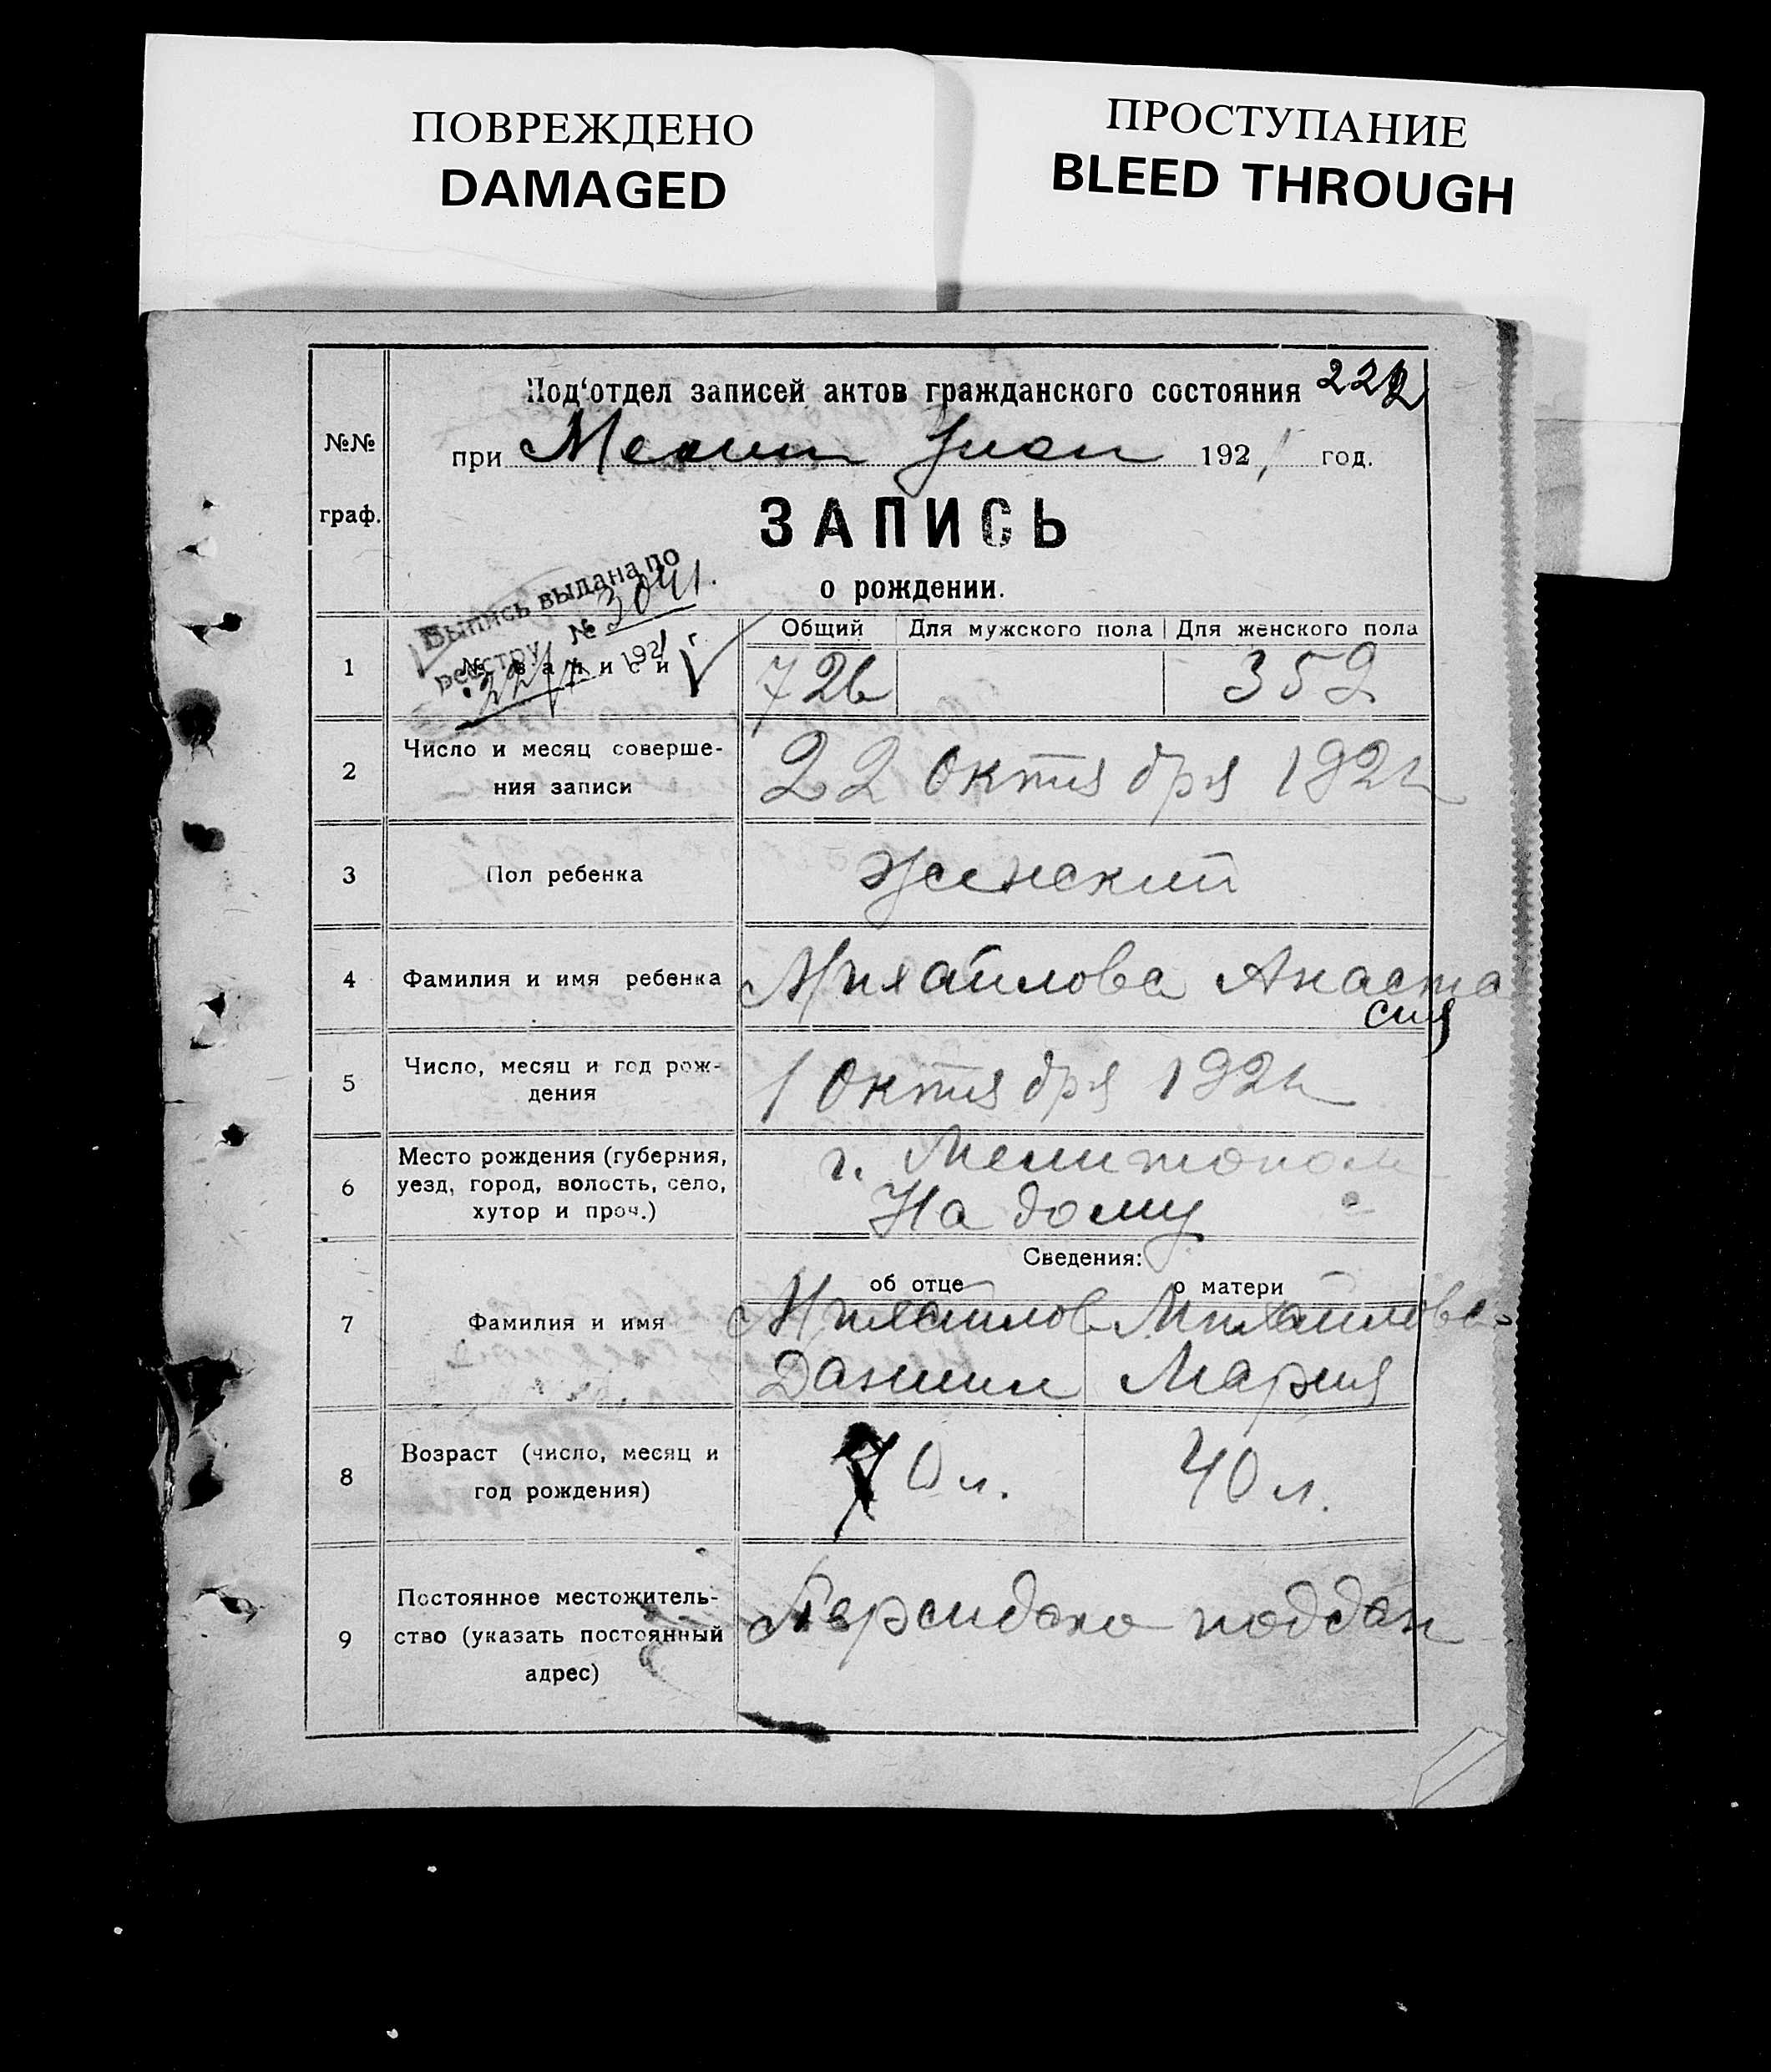 ПОВРЕЖДЕНО
DAMAGED
ПРОСТУПАНИЕ
BLEED THROUGH
Под'отдел записей актов гражданского состояния 222
№№
граф.
при Мелит 1921 год.
ЗАПИСЬ
о рождении.
Выпись выдана по
реестру № 3041.
22/X 1921 г.
1 № записи
Общий Для мужского пола Для женского пола
726 352
2 Число и месяц соверше-
ния записи
22 октября 1921
3 Пол ребенка
женский
4 Фамилия и имя ребенка
Михайлова Анаста
сия
5 Число, месяц и год рож-
дения
1 октября 1921
6 Место рождения (губерния,
уезд, город, волость, село,
хутор и проч.)
г. Мелитополь
На дому
Сведения:
об отце о матери
7 Фамилия и имя
Михайлов Михайлова
Даниил Мария
8 Возраст (число, месяц и
год рождения)
70 л. 40 л.
9 Постоянное местожитель-
ство (указать постоянный
адрес)
Персидско поддан